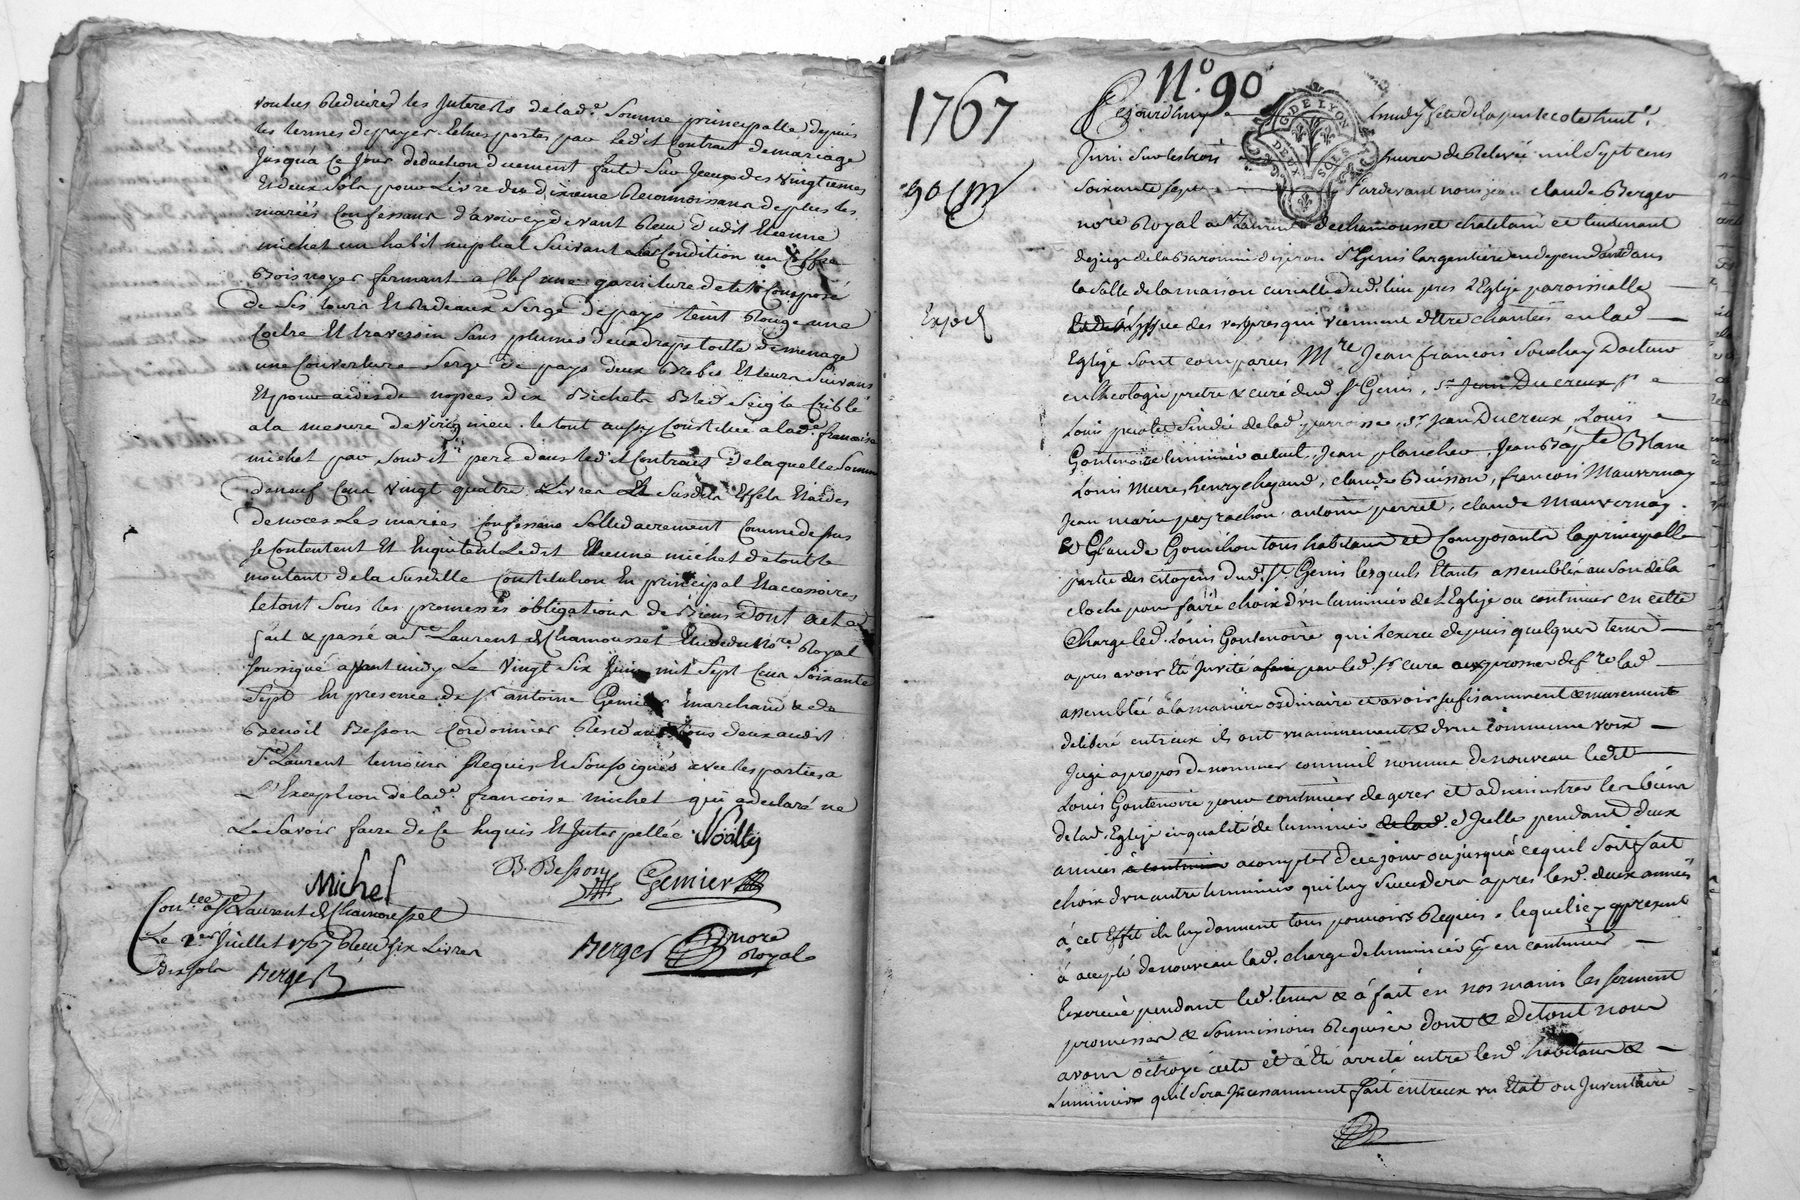 voulus Reduires les Interests de lad.e Somme principalle depuis
les termes de payer Echus portés par ledit Contrat de mariage
Jusqua Ce Jour deduction duement faite Sur Jceux des vingtiemes
Et deux Sols pour Livre du dixieme Reconnoissant de plus les
mariés Confessant d'avoir cy devant Reçu dudit Etienne
michel un habit nuptial Suivant Sa Condition un Coffre
Bois noyer fermant a Clef une garniture de lit Composé
de Ses tours Et Rideaux Serge de pays teint Rouge une
Coetre Et traversin Sans plumes deux draps toille de menage
une Couverture Serge de pays deux Brebis Et leurs Suivans
Et pour aides de nopces dix Bichets Bled Seigle Criblé
a la mesure de le tout aussy Constitué a lad.e françoise
michel par Soud.it pere dans ledit Contrat De laquelle Somme
de neuf Cent vingt quatre Livres Et Susdits Effets Et aides
de noces Les mariés Confessant Sollidairement Comme dessus
se Contentent Et Enquitent Ledit Etienne michel de tout le
montant de la Susditte Constitution En principal Et accessoires
le tout Sous les promesses obligations de Biens Dont acte
fait & passé a St Laurent de Chamousset Etude du No.re Royal
soussigné avant midy Le vingt Six Juin mil Sept Cent Soixante
Sept En presence de Sr antoine Gemier marchand & de
Benoit Besson Cordonnier Resid.ants tous deux audit
St Laurent temoins Requis Et Soussignés avec les parties a
L'Exception de lad.e francoise michel qui a declaré ne
Le Savoir faire de Ce Enquis Et Interpellée
Michel B. Besson Gemier
Con.lée a St Laurent de Chamousset
Le 1er Juillet 1767 Reçu Six Livres
Six Sols Berger
Berger no.re Royal
1767
N.o 90
90
Exped
G. DE LYON
DEUX SOLS
Cejourdhuy Lundy fete de la pentecote huit.e
Juin Sur les trois heures de Relevée mil Sept cens
Soixante Sept Pardevant nous jean claude Berger
no.re Royal a St Laurent de chamousset chatelain et lieutenant
de juge de la Baronnie de St Genis largentiere en dependant dans
la Salle de la maison curialle dud. lieu pres l'Eglise paroissialle
Lyssue des vespres qui viennent d'Etre chantées en lad
Eglise Sont comparus M.re Jean françois Souchay Docteur
en theologie pretre & curé dud. St Genis, Sr Jean Ducreux Sr
Louis Sindic de lad. parroisse, Sr Jean Ducreux, Louis
Gontenoire luminier actuel, Jean plancher, Jean Bapte Blanc
Louis Mure, henry chazaud, claude Buisson, françois Mauvernay
Jean marie peyrachon antoine perret, claude Mauvernay.
& Claude Gonichon tous habitans et Composants la principalle
partie des citoyens dud. St Genis lesquels Etants assemblés au Son de la
cloche pour faire choix d'un luminier de l'Eglise ou continuer en cette
charge led. Louis Gontenoire qui l'exerce depuis quelques tems
apres avoir Eté Invité par led. Sr curé aux prosnes de fre lad
assemblée a la manière ordinaire et avoir sufisamment & murement
deliberé entreux ils ont unanimement & d'une commune voix
Jugé apropos de nommer comm'il nomme de nouveau ledit
Louis Gontenoire pour continuer de gerer et administrer les biens
de lad. Eglise en qualité de luminier de lad. d'Jcelle pendant deux
années a continuer a compter de ce jour ou jusqua ce qu'il Soit fait
choix d'un autre luminier qui luy Succedera apres lesd. deux années
à cet Effet ils luy donnent tous pouvoirs Requis, lequel icy present
à accepté de nouveau lad. charge de luminier en continuer
l'exercice pendant led. tems & á fait en nos mains les serment
promesses & Soumissions Requises dont & de tout nous
avons octroyé acte et à Eté arreté entre lesd. habitans &
Luminier qu'il Sera Jncessamment fait entreux un Etat ou Inventaire